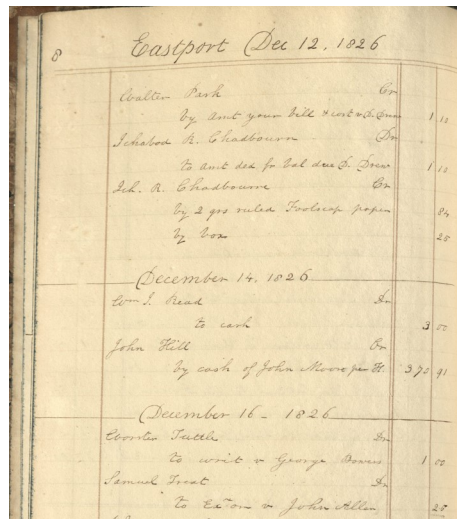 8 Eastport Dec 12, 1826
Walter Park Cr
by amt your bill & cost v D. Drew 1 10
Ichabod R. Chadbourn Dr
to amt ded for bal due D. Drew 1 10
Ich. R. Chadbourne Cr
by 2 qrs ruled Foolscap paper 84
by box 25
December 14, 1826
Wm J. Read Dr
to cash 3 00
John Hill Cr
by cash of John Moore per H. 91
December 16 - 1826
Worster Tuttle Dr
to writ v George 1 00
Samuel Treat Dr
to Exon v John Allen 25